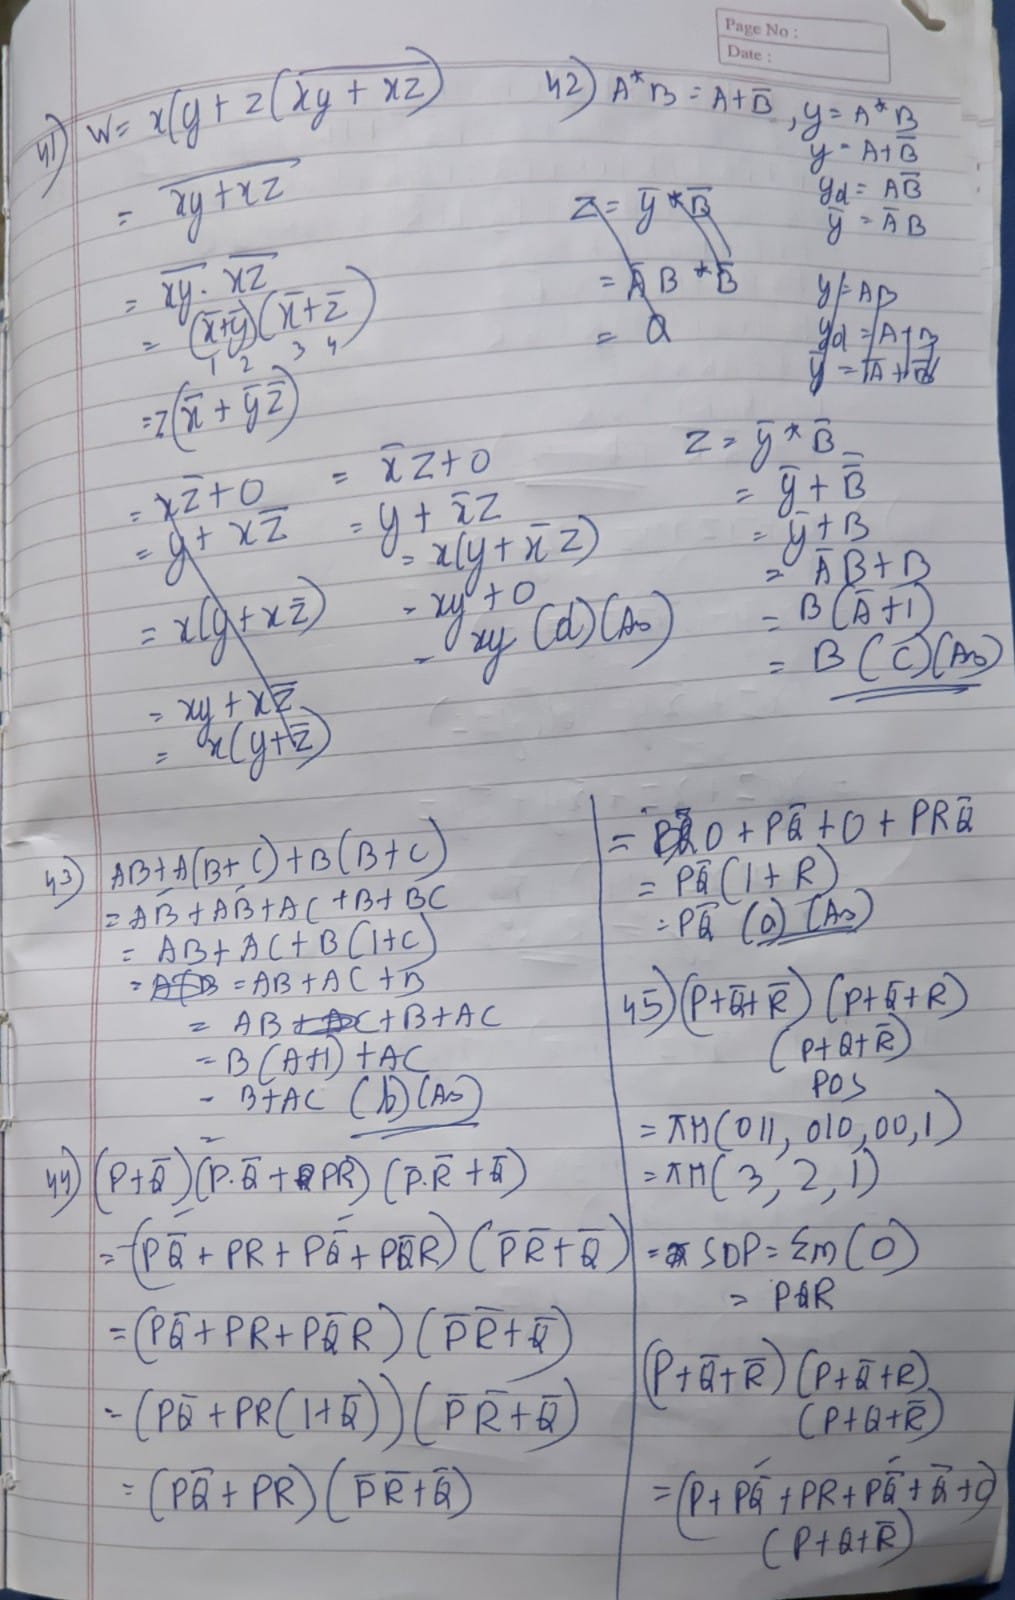 Page No :
Date :
41) W = x(y + z(\overline{xy + xz})
= \overline{xy + xz}
= \overline{xy} . \overline{xz}
= (x̄+ȳ)(x̄+z̄)
1 2 3 4
= z(x̄ + ȳz̄)
= xz̄ + 0
= y + xz̄
= x(y + xz̄)
= xy + xz̄
= x(y+z̄)
= x̄z + 0
= y + x̄z
= x(y + x̄z)
= xy + 0
= xy (d)(As)
42) A*B = A+B̄, y = A*B
y = A+B̄
yd = AB̄
ȳ = ĀB
Z = ȳ * B̄
= ĀB * B̄
= Q
y = AB
yd = A+B
ȳ = Ā+B̄
Z = ȳ * B̄
= ȳ + \overline{B̄}
= ȳ + B
= ĀB + B
= B(Ā+1)
= B (C)(As)
43) AB + A(B+C) + B(B+C)
= AB + AB + AC + B + BC
= AB + AC + B(1+C)
= A+B = AB + AC + B
= AB + AC + B + AC
= B(A+1) + AC
= B+AC (b)(As)
44) (P+Q̄)(P.Q̄ + PR)(P̄.R̄ + Q̄)
= (PQ̄ + PR + PQ̄ + PQ̄R)(P̄R̄+Q̄)
= (PQ̄ + PR + PQ̄R)(P̄R̄+Q̄)
= (PQ̄ + PR(1+Q̄))(P̄R̄+Q̄)
= (PQ̄ + PR)(P̄R̄+Q̄)
= 0 + PQ̄ + 0 + PRQ̄
= PQ̄(1+R)
= PQ̄ (a)(As)
45) (P+Q̄+R̄)(P+Q̄+R)
(P+Q+R̄)
POS
= πM(011, 010, 00,1)
= πM(3, 2, 1)
= SOP = Σm(0)
= PQR
(P+Q̄+R̄)(P+Q̄+R)
(P+Q+R̄)
= (P + PQ̄ + PR + PQ̄ + Q̄ + 0)
(P+Q+R̄)